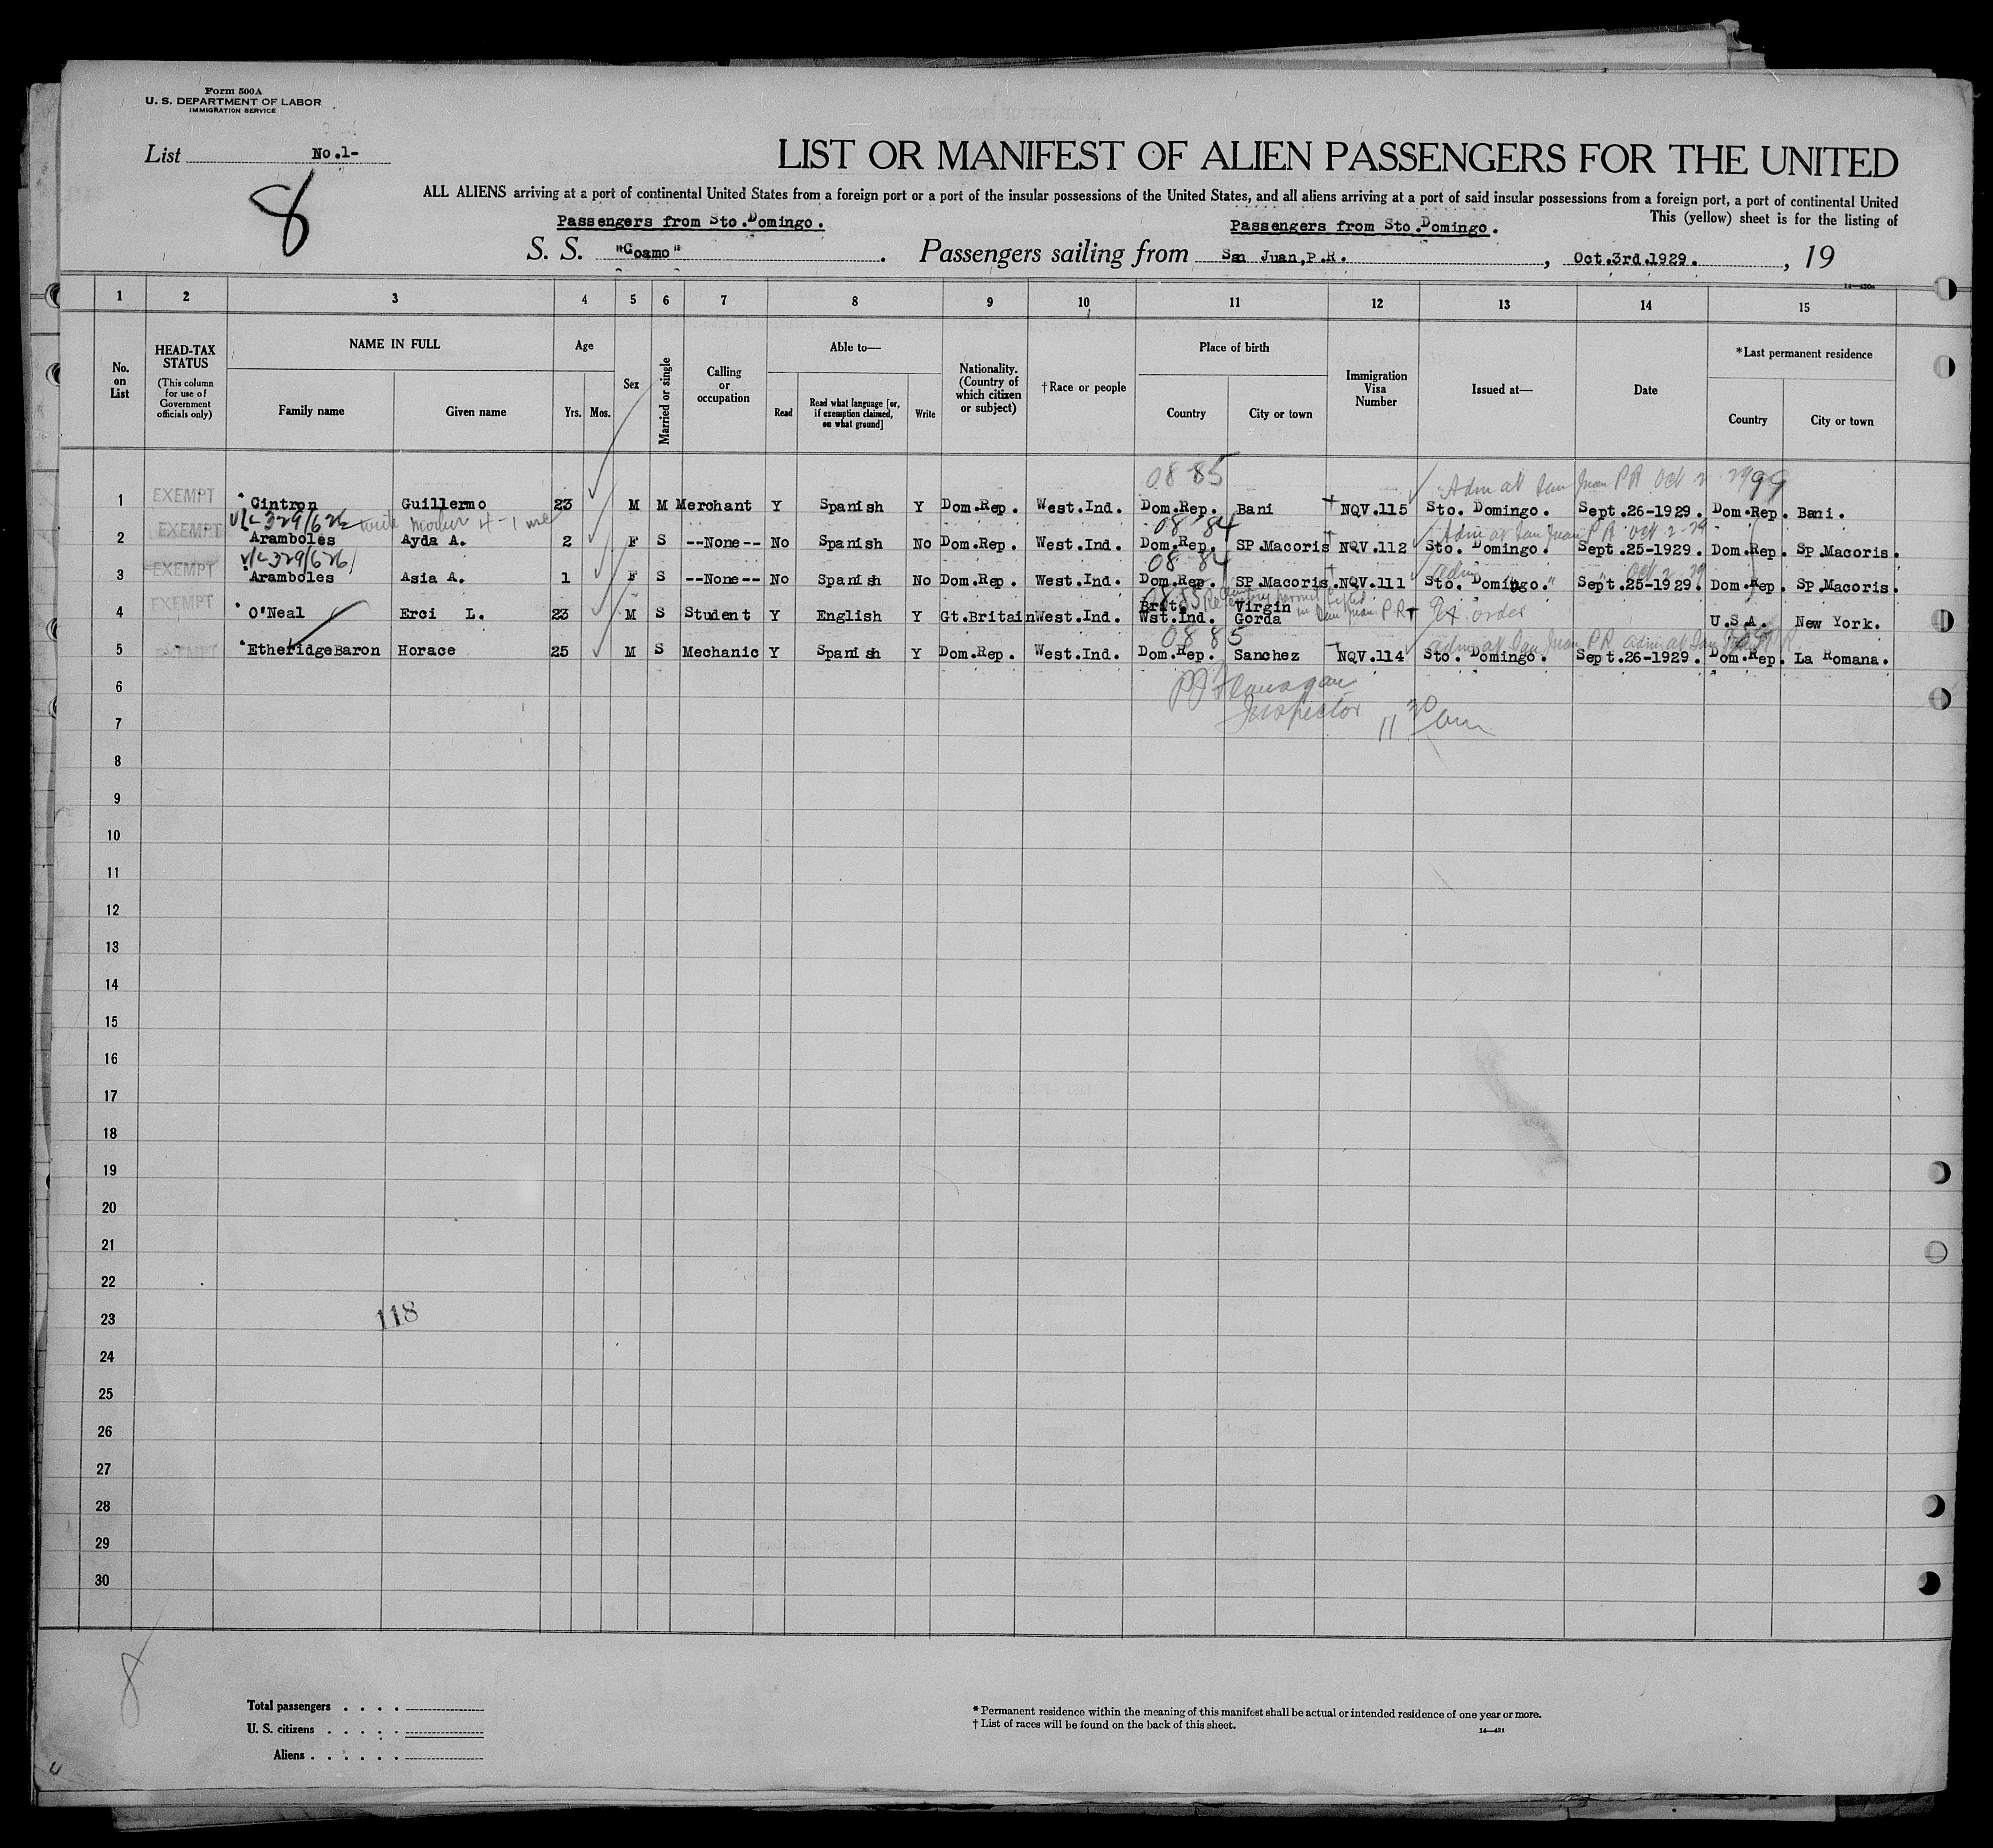 Form 500A
U. S. DEPARTMENT OF LABOR
IMMIGRATION SERVICE
List No.1-
8
LIST OR MANIFEST OF ALIEN PASSENGERS FOR THE UNITED
ALL ALIENS arriving at a port of continental United States from a foreign port or a port of the insular possessions of the United States, and all aliens arriving at a port of said insular possessions from a foreign port, a port of continental United
This (yellow) sheet is for the listing of
Passengers from Sto.Domingo. Passengers from Sto.Domingo.
S. S. "Coamo" . Passengers sailing from San Juan,P.R. , Oct.3rd.1929. , 19
14—430a
1 2 3 4 5 6 7 8 9 10 11 12 13 14 15
No. on List
HEAD-TAX STATUS
(This column for use of Government officials only)
NAME IN FULL
Family name Given name
Age
Yrs. Mos.
Sex
Married or single
Calling or occupation
Able to—
Read Read what language [or, if exemption claimed, on what ground] Write
Nationality. (Country of which citizen or subject)
†Race or people
Place of birth
Country City or town
Immigration Visa Number
Issued at—
Date
*Last permanent residence
Country City or town
08 85 Adm at San Juan PR Oct 2 29 99
1 EXEMPT Cintron Guillermo 23 M M Merchant Y Spanish Y Dom.Rep. West.Ind. Dom.Rep. Bani NQV.115 Sto. Domingo. Sept.26-1929. Dom.Rep. Bani.
V/L 329/622 08 84 Adm at San Juan PR Oct-2-29
2 EXEMPT Aramboles Ayda A. 2 F S --None-- No Spanish No Dom.Rep. West.Ind. Dom.Rep. SP.Macoris NQV.112 Sto. Domingo. Sept.25-1929. Dom.Rep. SP.Macoris.
V/L 329/626 08 84 Adm " " Oct 2-29
3 EXEMPT Aramboles Asia A. 1 F S --None-- No Spanish No Dom.Rep. West.Ind. Dom.Rep. SP.Macoris. NQV.111 Sto. Domingo. Sept.25-1929. Dom.Rep. SP.Macoris.
4 EXEMPT O'Neal Erci L. 23 M S Student Y English Y Gt.Britain West.Ind. Brit. Wst.Ind. Virgin Gorda in San Juan P.R. U.S.A. New York.
08 85 Adm at San Juan PR adm at San Juan P.R.
5 EXEMPT EtheridgeBaron Horace 25 M S Mechanic Y Spanish Y Dom.Rep. West.Ind. Dom.Rep. Sanchez NQV.114 Sto. Domingo. Sept.26-1929. Dom.Rep. La Romana.
6
PJ Flanagan
Inspector
7 11 30 am
8
9
10
11
12
13
14
15
16
17
18
19
20
21
22
23 118
24
25
26
27
28
29
30
8
Total passengers . . . .
U. S. citizens . . . . .
Aliens . . . . . .
* Permanent residence within the meaning of this manifest shall be actual or intended residence of one year or more.
† List of races will be found on the back of this sheet.
14—431